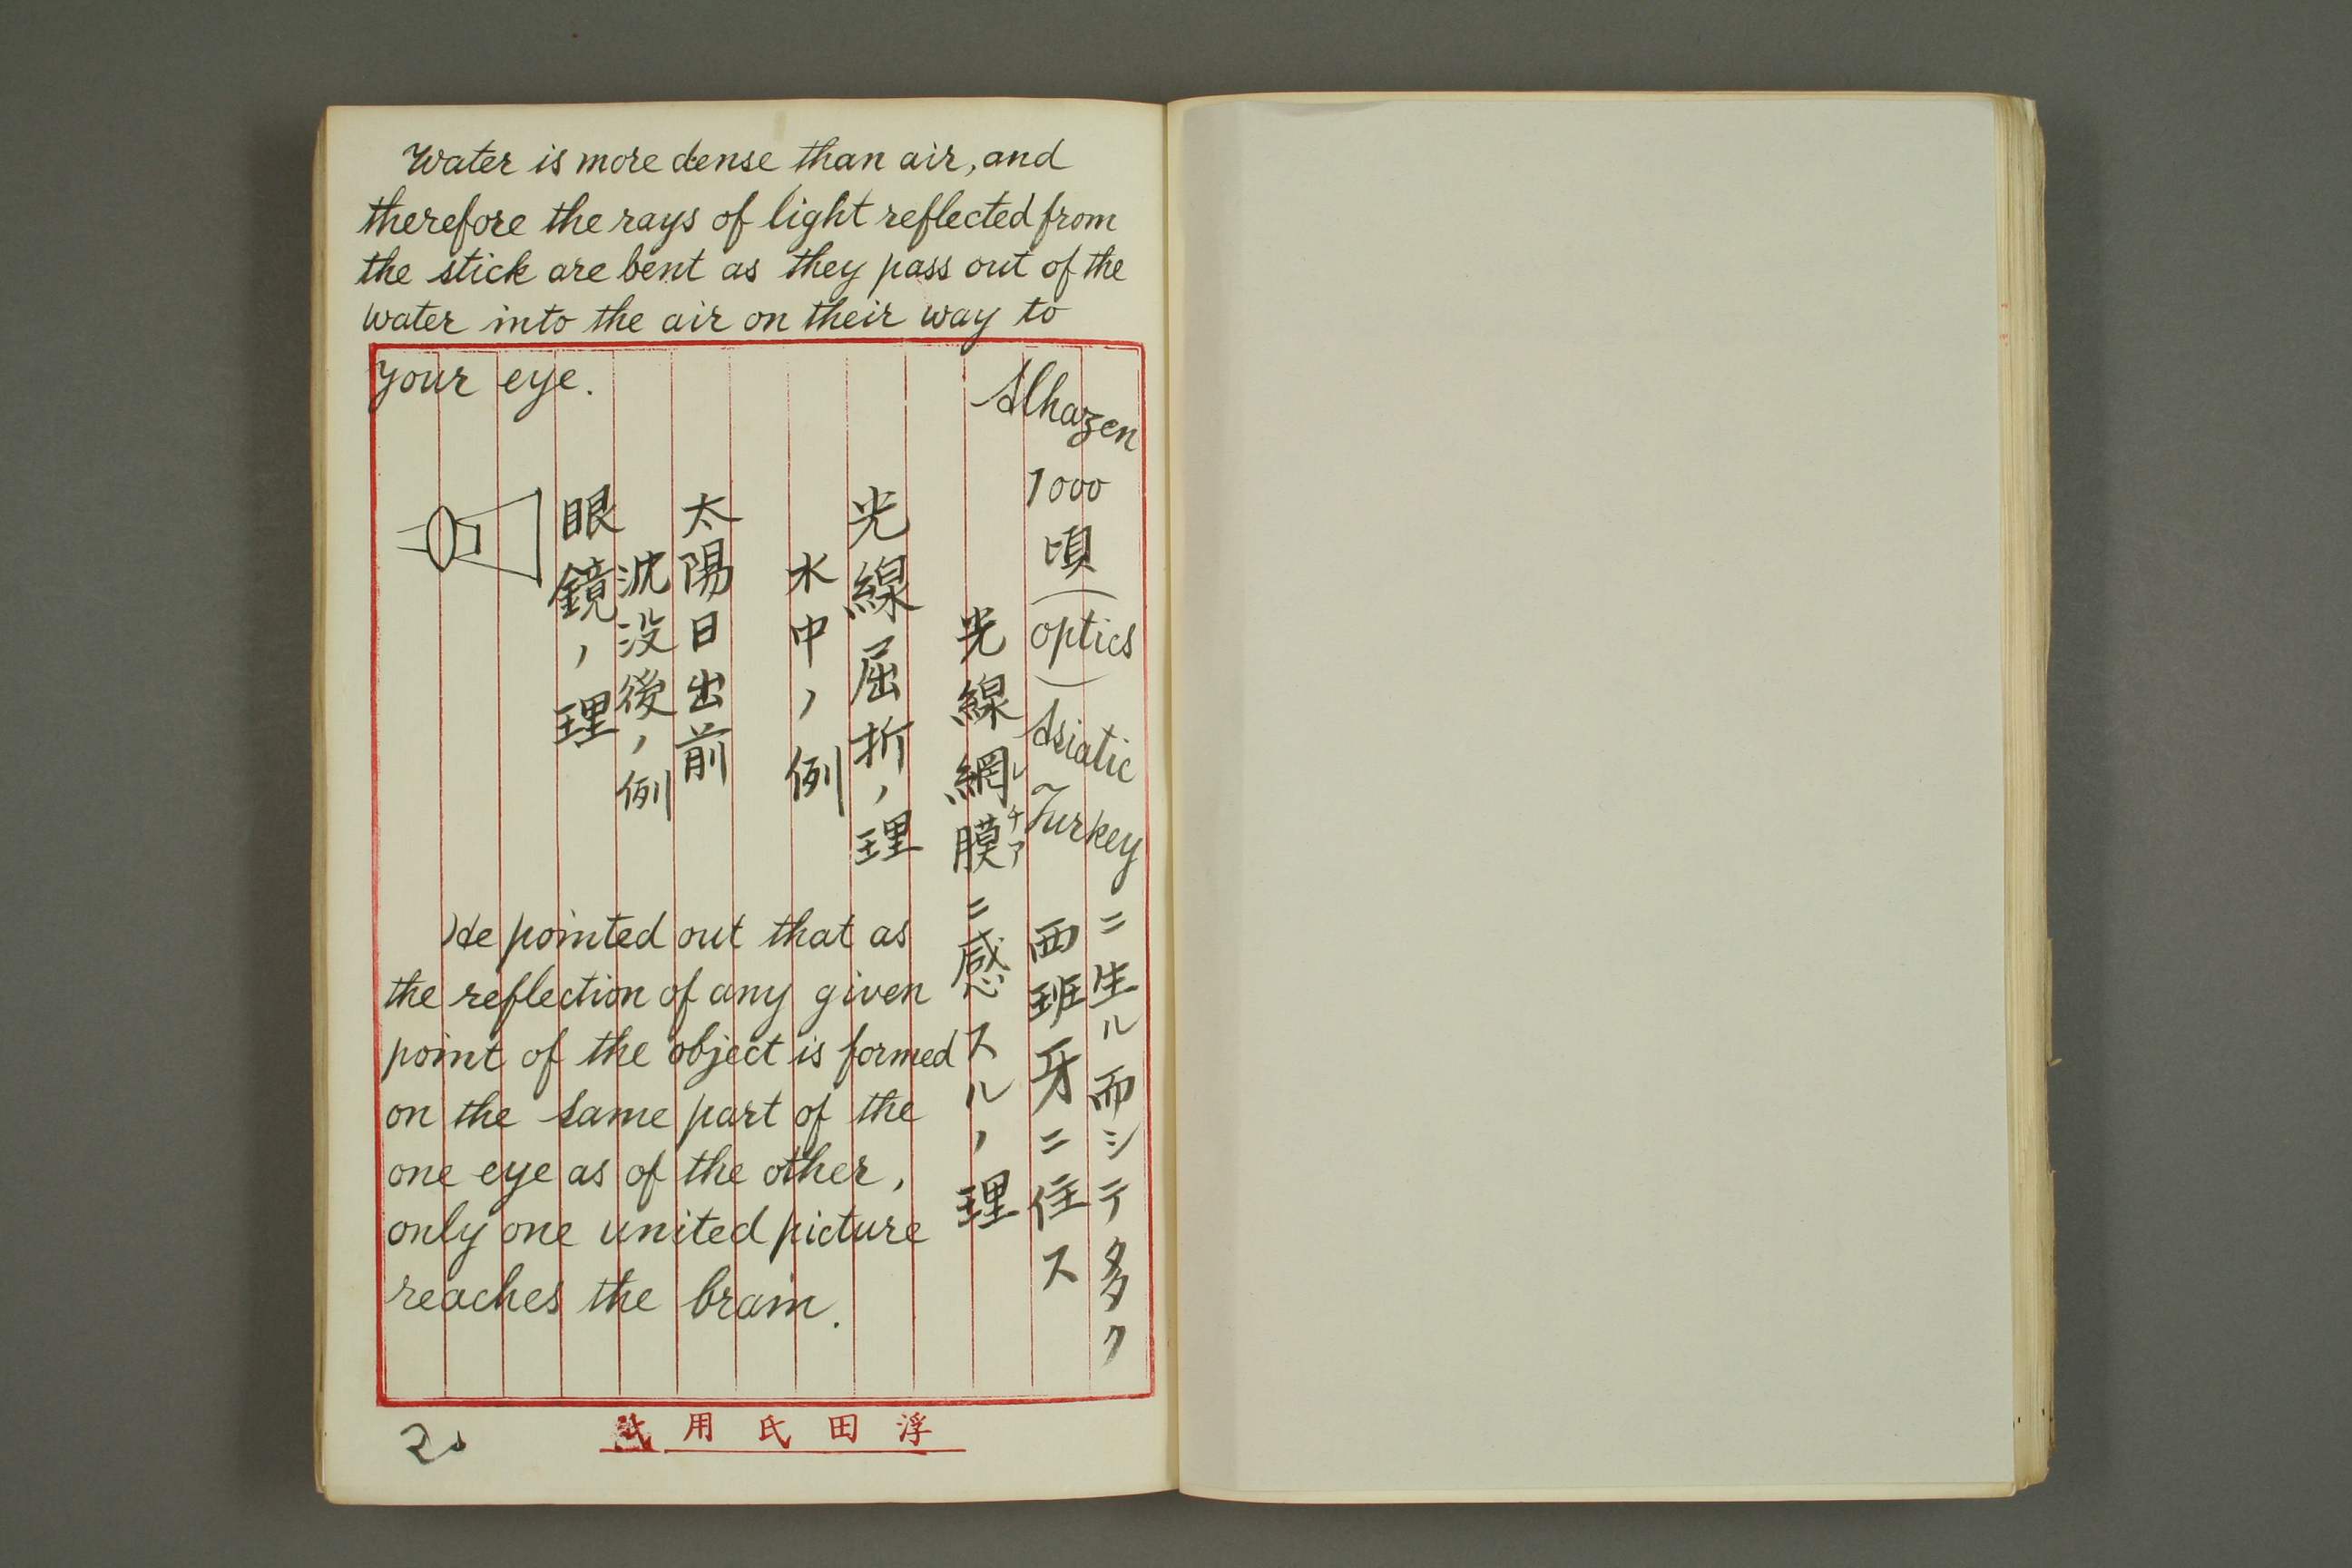 Water is more dense than air, and
therefore the rays of light reflected from
the stick are bent as they pass out of the
water into the air on their way to
your eye.
Alhazen
1000
頃
(optics)
Asiatic
Turkey
ニ生ル而シテ多ク
西班牙ニ住ス
光線網膜ニ感スルノ理
レチナ
光線屈折ノ理
水中ノ例
太陽日出前
沈没後ノ例
眼鏡ノ理
He pointed out that as
the reflection of any given
point of the object is formed
on the same part of the
one eye as of the other,
only one united picture
reaches the brain.
浮田氏用